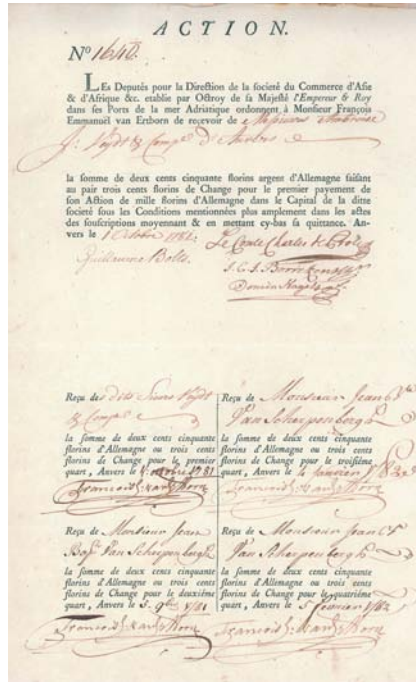 ACTION.
No 1640.
LEs Deputés pour la Direction de la societé du Commerce d'Asie
& d'Afrique &c. etablie par Octroy de sa Majesté l'Empereur & Roy
dans ses Ports de la mer Adriatique ordonnent à Monsieur François
Emmanuël van Ertborn de reçevoir de Messieurs
J: & Compe d'Anvers
la somme de deux cents cinquante florins argent d'Allemagne faisant
au pair trois cents florins de Change pour le premier payement de
son Action de mille florins d'Allemagne dans le Capital de la ditte
societé sous les Conditions mentionnées plus amplement dans les actes
des souscriptions moyennant & en mettant cy-bas sa quittance. An-
vers le 1 Octobre 1781.
Le Comte Charles
Guillaume Bolts.
Reçu des dits Sieurs
& Compe
la somme de deux cents cinquante
florins d'Allemagne ou trois cents
florins de Change pour le premier
quart, Anvers le 1781
Reçu de Monsieur Jean
Van Scherpenbergh
la somme de deux cents cinquante
florins d'Allemagne ou trois cents
florins de Change pour le troisiéme
quart, Anvers le
Reçu de Monsieur Jean
Van Scherpenbergh
la somme de deux cents cinquante
florins d'Allemagne ou trois cents
florins de Change pour le deuxiéme
quart, Anvers le 5. 9bre 1781
Reçu de Monsieur Jean
Van Scherpenbergh
la somme de deux cents cinquante
florins d'Allemagne ou trois cents
florins de Change pour le quatriéme
quart, Anvers le 5 fevrier 1782